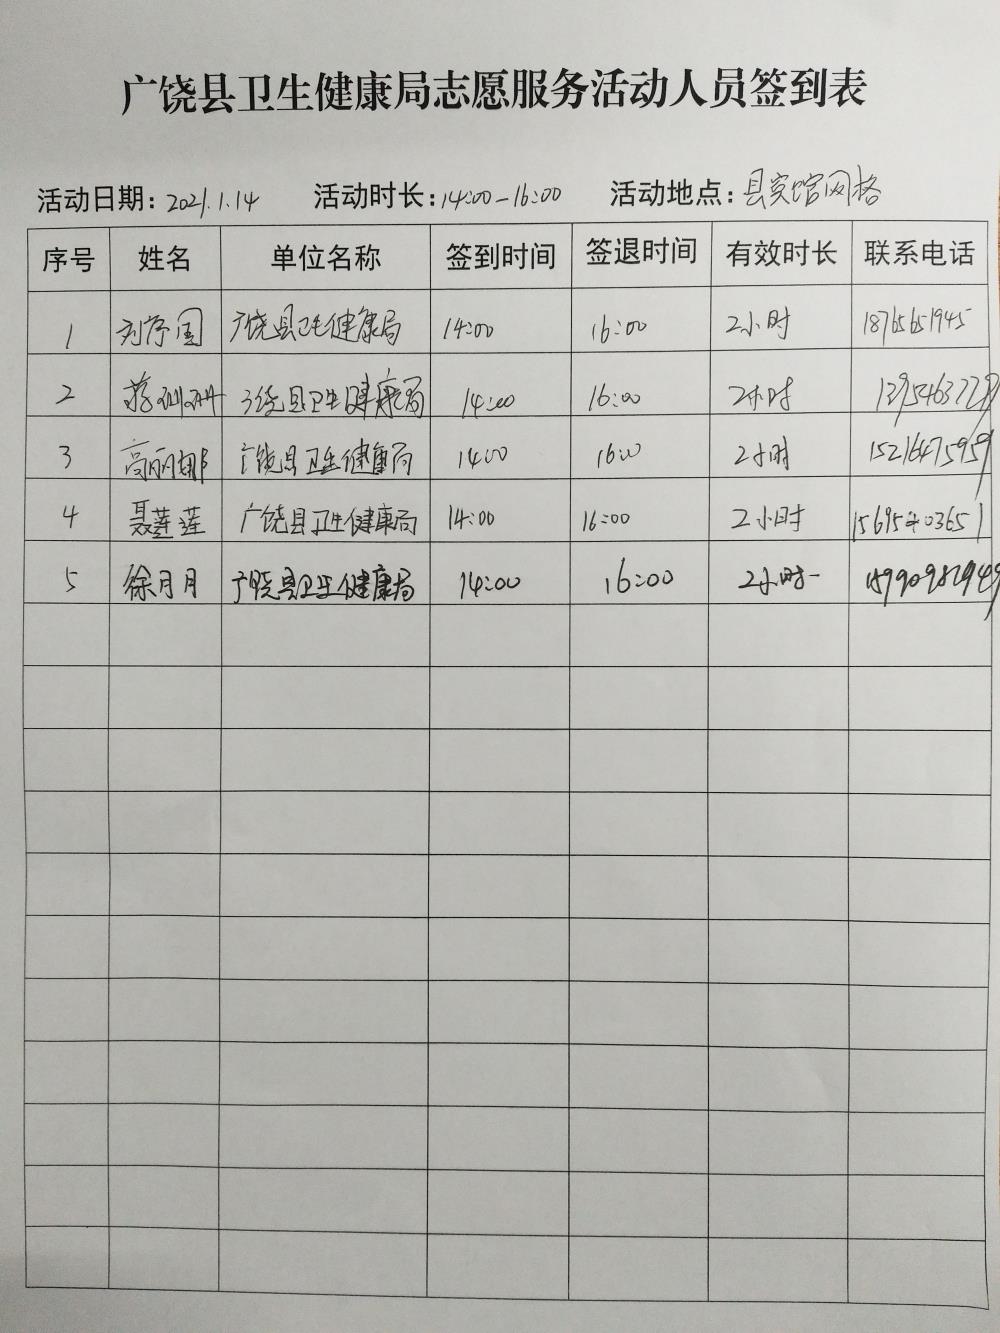 广饶县卫生健康局志愿服务活动人员签到表
活动日期：2021.1.14 活动时长：14:00-16:00 活动地点：县宾馆网格
序号 姓名 单位名称 签到时间 签退时间 有效时长 联系电话
1 刘序国 广饶县卫生健康局 14:00 16:00 2小时 18765651945
2 蒋珊珊 广饶县卫生健康局 14:00 16:00 2小时
3 高丽娜 广饶县卫生健康局 14:00 16:00 2小时 15216475959
4 聂莲莲 广饶县卫生健康局 14:00 16:00 2小时
5 徐月月 广饶县卫生健康局 14:00 16:00 2小时